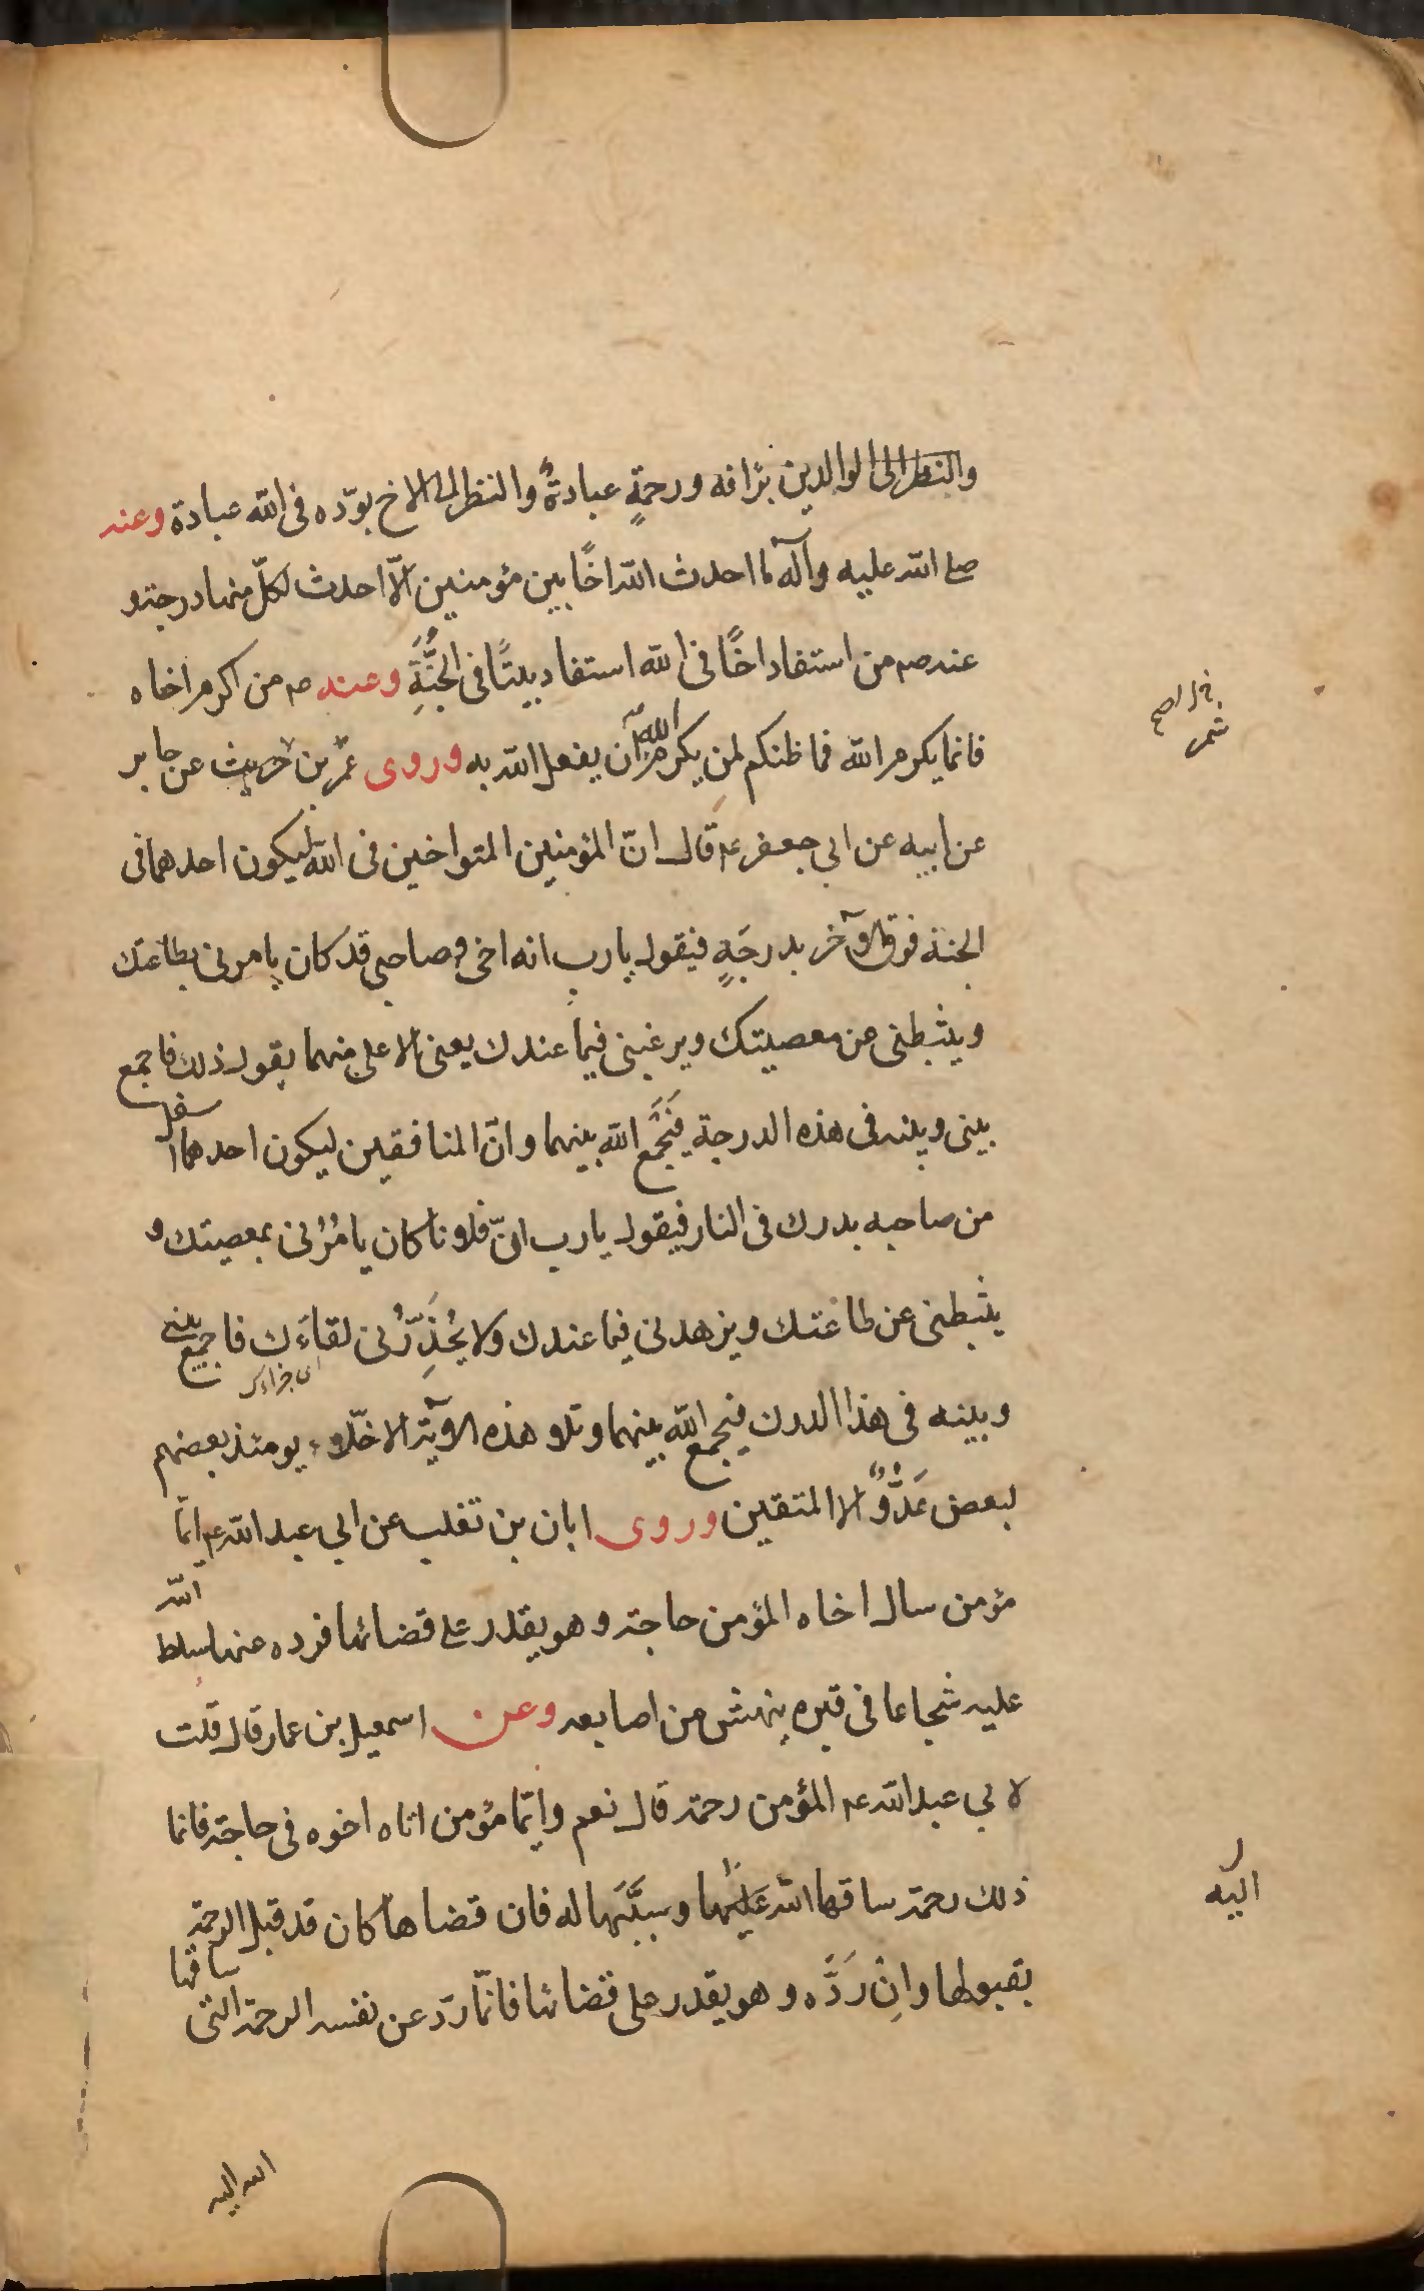 والنظر الى الوالدين برافه ورحمةٍ عبادةٌ والنظر الى الاخ بودّه فى الله عبادة وعنه
صلى الله عليه وآله ما احدث الله اخًا بين مؤمنين الّا احدث لكلّ منهما درجة و
عنه صم من استفاد اخًا فى الله استفاد بيتًا فى الجنَّةِ وعنه صم من اكرم اخاه
فانما يكرم الله فما ظنكم لمن يكرم الله ان يفعل الله به وروى عمر بن حريث عن جابر
شمر
عن ابيه عن ابي جعفر عم قال انّ المؤمنين المتواخين فى الله ليكون احدهما فى
الجنة فوق الآخر بدرجَةٍ فيقول يارب انه اخى وصاحبى قد كان يامرنى بطاعتك
ويثبطنى عن معصيتك ويرغبنى فيما عندك يعنى الاعلى منهما يقول ذلك فاجمع
بينى وبينه فى هذه الدرجة فَيَجْمَع الله بينهما وانّ المنافقين ليكون احدهما اسفل
من صاحبه بدرك فى النار فيقول يارب انّ فلانا كان يامُرُنى بمعصيتك و
يثبطنى عن طاعتك ويزهدنى فيما عندك ولا يُحَذِّرُنى لقاءَك فاجمع بينى
وبينه فى هذا الدرك فيجمع الله بينهما وتلا هذه الآية الاخلّاء يومئذ بعضهم
لبعض عَدُوٌّ الا المتقين وروى ابان بن تغلب عن ابي عبد الله عم ايّما
مؤمن سال اخاه المؤمن حاجة وهو يقدر على قضائها فرده عنها سلط الله
عليه شجاعا فى قبره ينهش من اصابعه وعن اسمعيل بن عمار قال قلت
لابي عبد الله عم المؤمن رحمة قال نعم وايّما مؤمن اتاه اخوه فى حاجة فانما
ذلك رحمة ساقها الله عَلَيْها وسبَّبَها له فان قضاها كان قد قبل الرحمة
اليه
بقبولها وانْ رَدَّه وهو يقدر على قضائها فانّما ردّ عن نفسه الرحمة التى ساقها
الله اليه